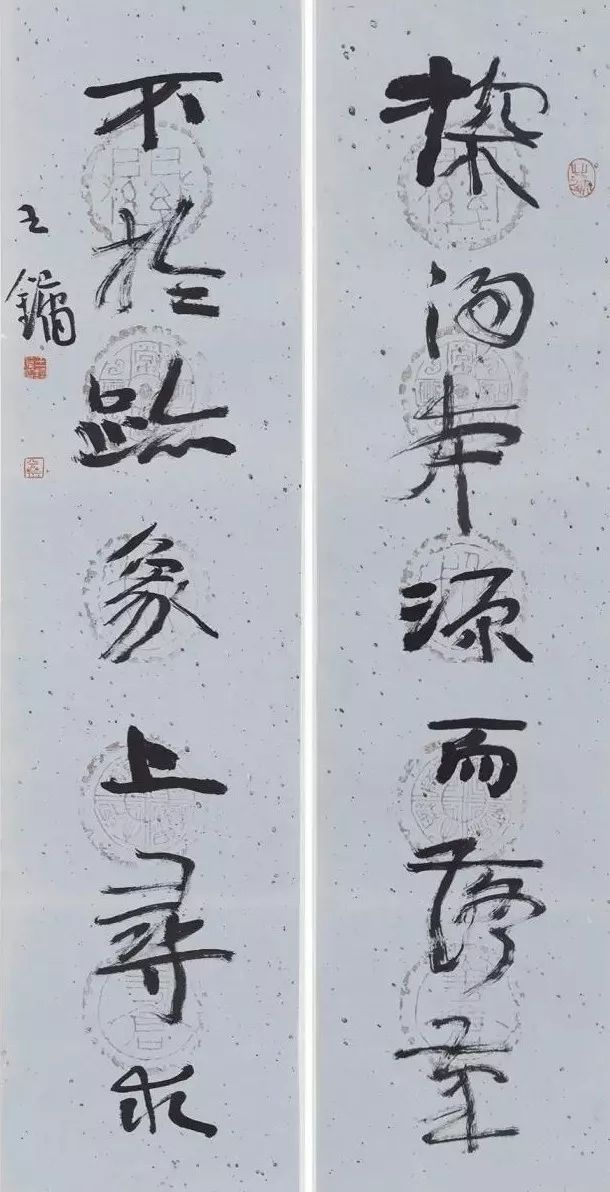 探本源而至
不於跡象上尋求
王鏞